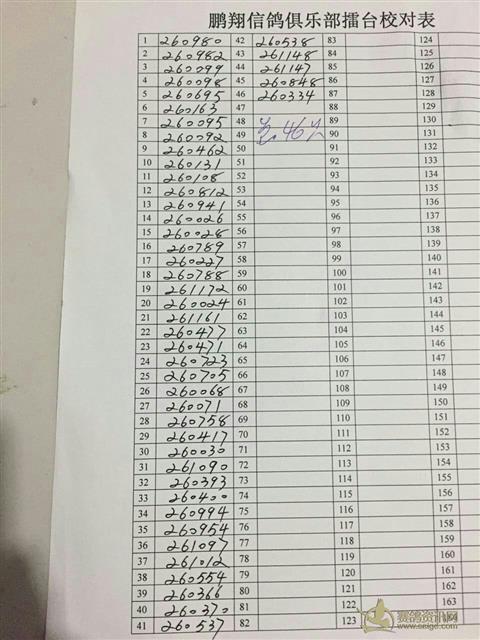 鹏翔信鸽俱乐部擂台校对表
1 260980 42 260538 83 124
2 260982 43 261148 84 125
3 260099 44 261147 85 126
4 260098 45 260848 86 127
5 260695 46 260334 87 128
6 260163 47 88 129
7 260095 48 89 130
8 260092 49 46 90 131
9 260462 50 91 132
10 260131 51 92 133
11 260108 52 93 134
12 260812 53 94 135
13 260941 54 95 136
14 260026 55 96 137
15 260028 56 97 138
16 260789 57 98 139
17 260227 58 99 140
18 260788 59 100 141
19 261172 60 101 142
20 260024 61 102 143
21 261161 62 103 144
22 260477 63 104 145
23 260471 64 105 146
24 260723 65 106 147
25 260705 66 107 148
26 260068 67 108 149
27 260071 68 109 150
28 260758 69 110 151
29 260417 70 111 152
30 260030 71 112 153
31 261090 72 113 154
32 260393 73 114 155
33 260400 74 115 156
34 260994 75 116 157
35 260954 76 117 158
36 261097 77 118 159
37 261012 78 119 160
38 260554 79 120 161
39 260366 80 121 162
40 260370 81 122 163
41 260537 82 123
赛鸽资讯网